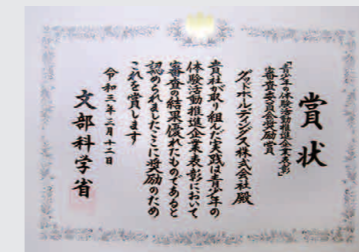 賞状
「青少年の体験活動推進企業表彰」
審査委員会奨励賞
グッドホールディングス株式会社 殿
貴社が取り組んだ実践は青少年の
体験活動推進企業表彰において
審査の結果優れたものであると
認められましたここに奨励のため
これを賞します
令和三年三月十二日
文部科学省